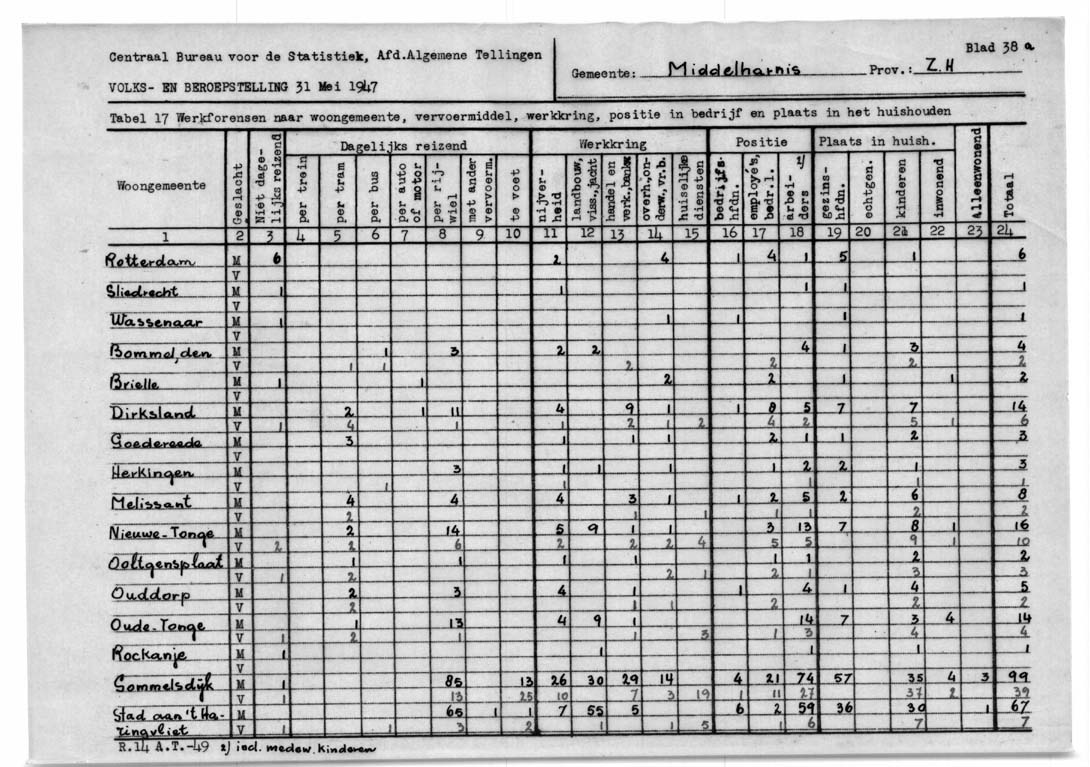 Centraal Bureau voor de Statistiek, Afd.Algemene Tellingen
Blad 38 a
Gemeente: Middelharnis Prov.: Z.H
VOLKS- EN BEROEPSTELLING 31 Mei 1947
Tabel 17 Werkforensen naar woongemeente, vervoermiddel, werkkring, positie in bedrijf en plaats in het huishouden
Woongemeente | Geslacht | Niet dage-lijks reizend | Dagelijks reizend | Werkkring | Positie | Plaats in huish. | Alleenwonend | Totaal
per trein | per tram | per bus | per auto of motor | per rij-wiel | met ander vervoerm. | te voet | nijver-heid | landbouw, viss.,jacht | handel en verk.,bankw | overh.on-derw.,vr.b. | huiselijke diensten | bedrijfs-hfdn. | employé's, bedr.l. | arbei-ders 2) | gezins-hfdn. | echtgen. | kinderen | inwonend
1 2 3 4 5 6 7 8 9 10 11 12 13 14 15 16 17 18 19 20 21 22 23 24
Rotterdam M 6 2 4 1 4 1 5 1 6
V
Sliedrecht M 1 1 1 1 1
V
Wassenaar M 1 1 1 1 1
V
Bommel, den M 1 3 2 2 4 1 3 4
V 1 1 2 2 2 2
Brielle M 1 1 2 2 1 1 2
V
Dirksland M 2 1 11 4 9 1 1 8 5 7 7 14
V 1 4 1 1 2 1 2 4 2 5 1 6
Goedereede M 3 1 1 1 2 1 1 2 3
V
Herkingen M 3 1 1 1 1 2 2 1 3
V 1 1 1 1 1
Melissant M 4 4 4 3 1 1 2 5 2 6 8
V 2 1 1 1 1 2 2
Nieuwe-Tonge M 2 14 5 9 1 1 3 13 7 8 1 16
V 2 2 6 2 2 2 4 5 5 9 1 10
Ooltgensplaat M 1 1 1 1 1 1 2 2
V 1 2 2 1 2 1 3 3
Ouddorp M 2 3 4 1 1 4 1 4 5
V 2 1 1 2 2 2
Oude-Tonge M 1 13 4 9 1 14 7 3 4 14
V 1 2 1 1 3 1 3 4 4
Rockanje M 1 1 1 1 1
V
Sommelsdijk M 1 85 13 26 30 29 14 4 21 74 57 35 4 3 99
V 1 13 25 10 7 3 19 1 11 27 37 2 39
Stad aan 't Ha- M 65 1 1 7 55 5 6 2 59 36 30 1 67
ringvliet V 1 3 2 1 1 5 1 6 7 7
R.14 A.T.-49 2) incl. medew. kinderen